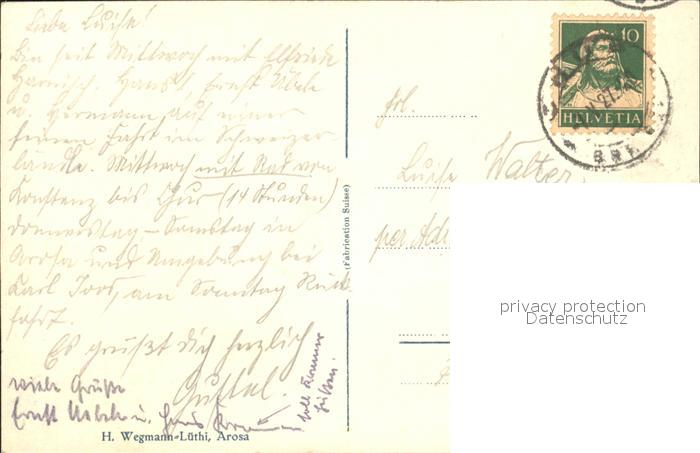 Liebe Luise!
Bin seit Mittwoch mit Elfriede
Harnisch, Hans, Ernst Übele
u. Hermann auf einer
feinen Fahrt im Schweizer-
lande. Mittwoch mit Rad von
Konstanz bis Chur (14 Stunden)
Donnerstag – Samstag in
Arosa und Umgebung bei
Karl Joos, am Sonntag Rück-
fahrt.
Es grüßt dich herzlich
Gustel.
viele Grüße
Ernst Uebele u. Hans
H. Wegmann-Lüthi, Arosa
(Fabrication Suisse)
Frl.
Luise Walter
per Adr
10
HELVETIA
privacy protection
Datenschutz